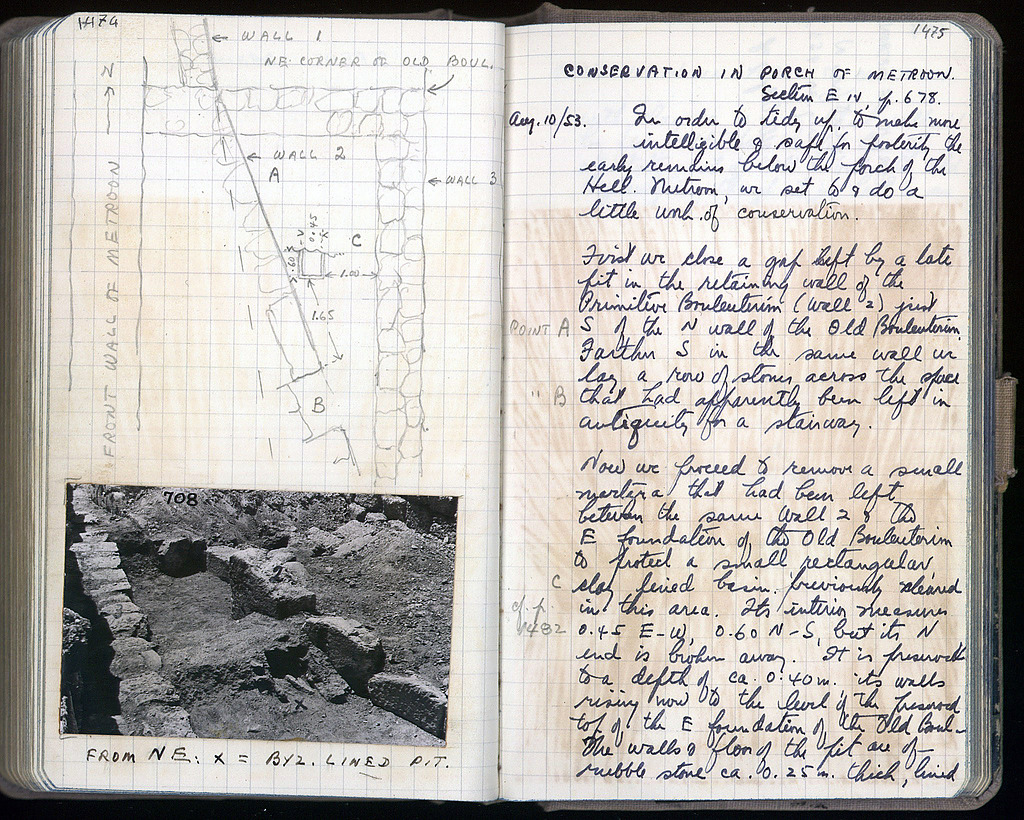 1474
← WALL 1
NE. CORNER OF OLD BOUL.
N
← WALL 2
A
← WALL 3
FRONT WALL OF METROON
C
0.45
.60
1.00
1.65
B
708
2
x
FROM NE: x = BYZ. LINED PIT.
1475
CONSERVATION IN PORCH OF METROON.
Section E IV, p. 678.
Aug. 10/53. In order to tidy up, to make more
intelligible & safe for posterity the
early remains below the porch of the
Hell. Metroon, we set to & do a
little work of conservation.
First we close a gap left by a late
pit in the retaining wall of the
Primitive Bouleuterion (wall 2) just
POINT A S of the N wall of the Old Bouleuterion.
Farther S in the same wall we
lay a row of stones across the space
" B that had apparently been left in
antiquity for a stairway.
Now we proceed to remove a small
martera that had been left
between the same wall 2 & the
E foundation of the Old Bouleuterion
to protect a small rectangular
C clay lined basin previously cleared
cf. p. 1482 in this area. Its interior measures
0.45 E-W, 0.60 N-S, but its N
end is broken away. It is preserved
to a depth of ca. 0.40m. its walls
rising now to the level of the preserved
top of the E foundation of the Old Boul-
The walls & floor of the pit are of
rubble stone ca. 0.25m. thick, lined